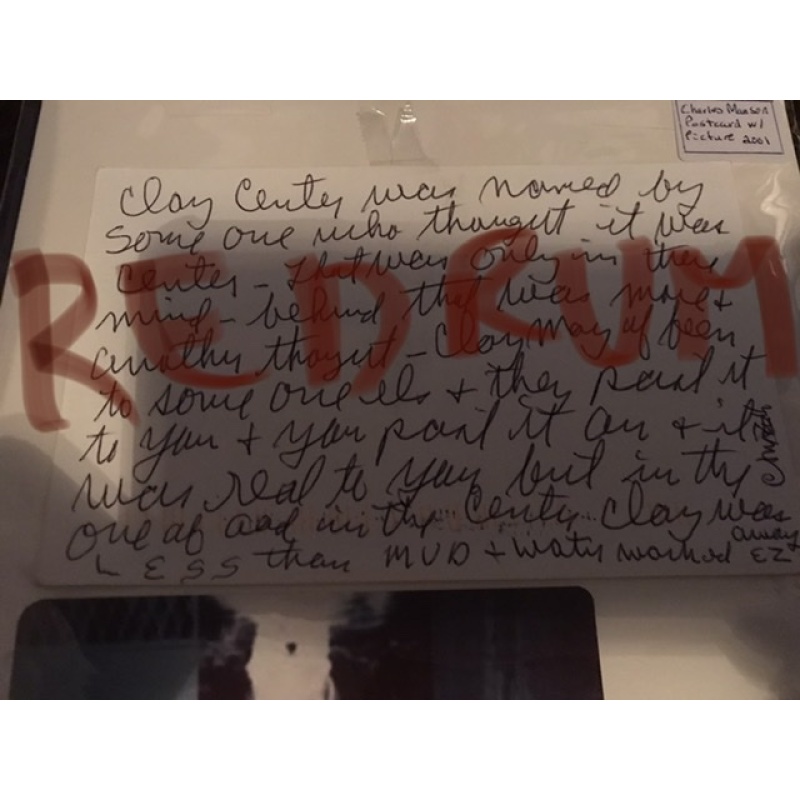 Charles Manson
Postcard w/
Picture 2001
Clay Center was named by
Some one who thougt it was
Center - that was only in their
mind - behind that was more &
another thougt - Clay may of been
to some one els & they it
to you & you it on & it
was real to you but in the
one of and in the Center Clay was
LESS than MUD & water washed away
EZ
REDRUM